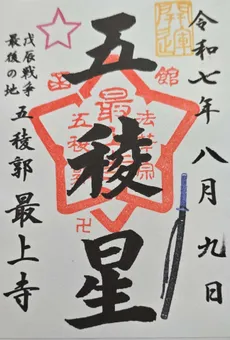 開運
令和七年八月九日
五稜星
函館
最
法華宗
五稜
卍
戊辰戦争
最後の地
五稜郭 最上寺